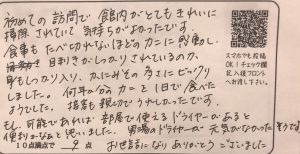 初めての訪問で館内がとてもきれいに
掃除されていて気持ちがよかったです。
食事もたべ切れないほどのカニに感動し、
目利きがしっかりされているのか、
身もしっかり入り、カニみその多さにビックリ
しました。何年分かのカニを1日で食べた
ようでした。接客も親切でうれしかったです。
もし可能であれば部屋で使えるドライヤーがあると
便利かなと思いました。男湯のドライヤーが元気がなかったそうです
10点満点で 9 点 お世話になりありがとうございました
スマホでも投稿
OK！チェック欄
記入後フロント
へお渡し下さい。